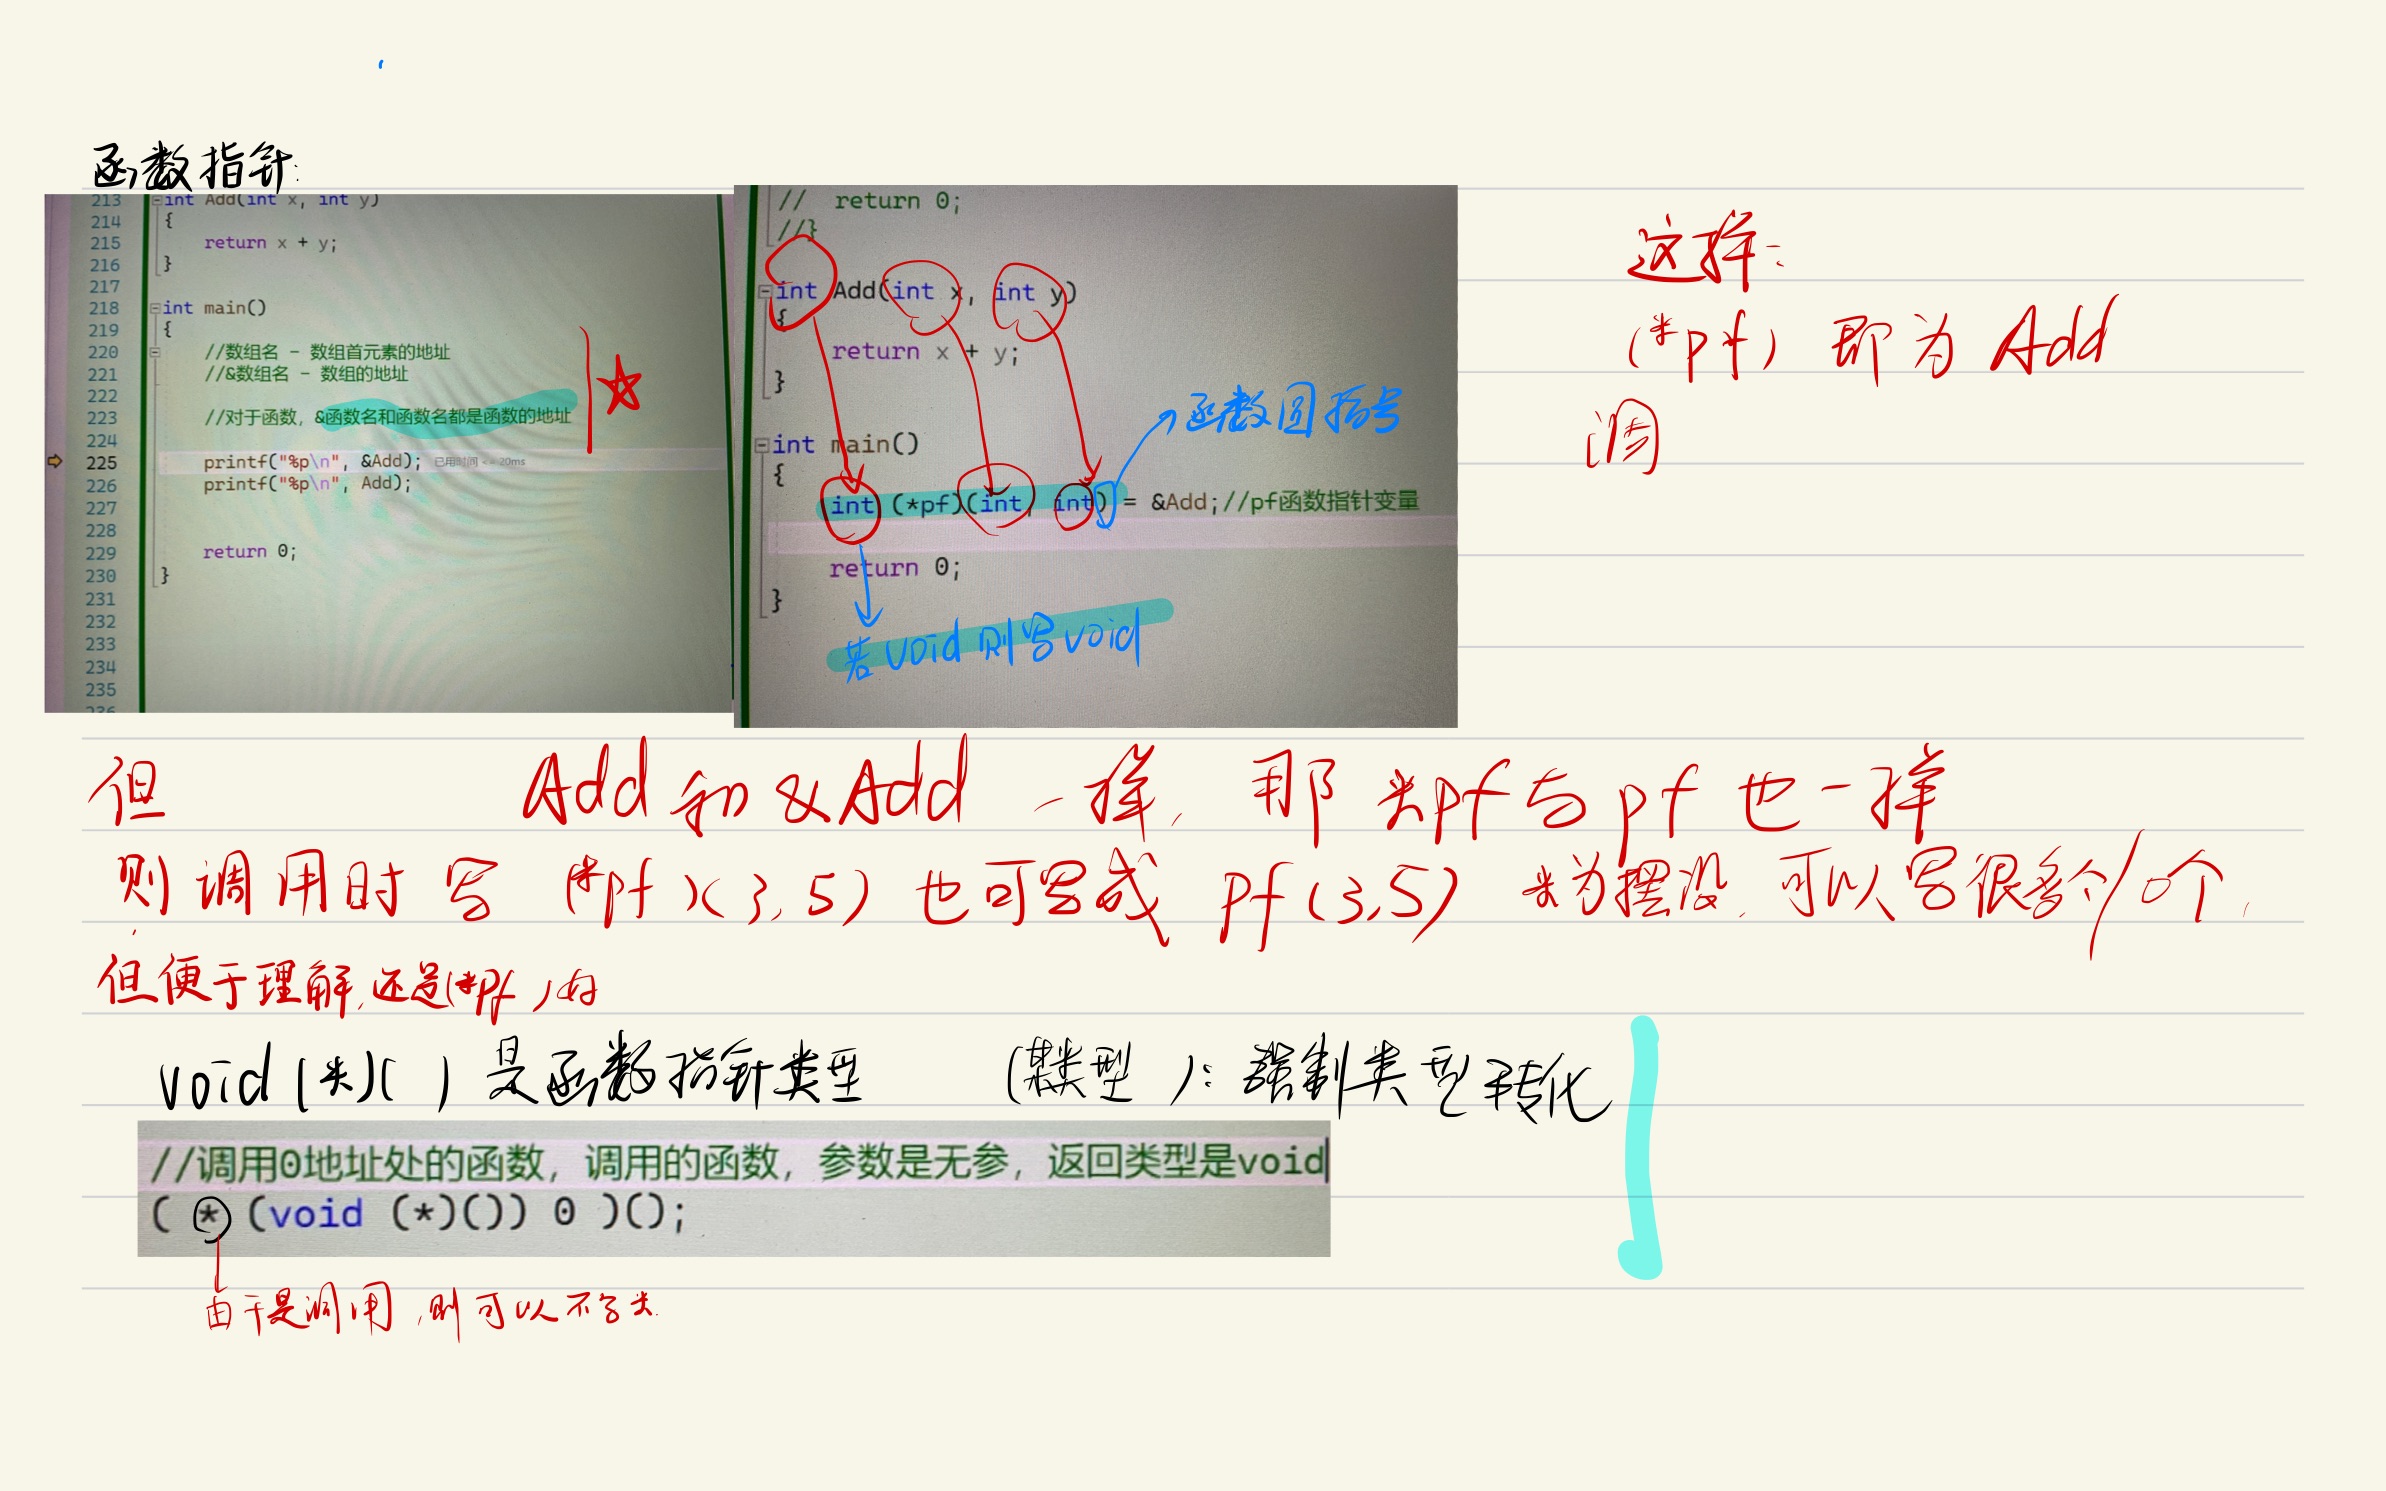 函数指针:
213 int Add(int x, int y)
214 {
215 return x + y;
216 }
217
218 int main()
219 {
220 //数组名 - 数组首元素的地址
221 //&数组名 - 数组的地址
222
223 //对于函数，&函数名和函数名都是函数的地址
224
225 printf("%p\n", &Add); 已用时间 <= 20ms
226 printf("%p\n", Add);
227
228
229 return 0;
230 }
231
232
233
234
235
236
// return 0;
//}
int Add(int x, int y)
{
return x + y;
}
函数圆括号
int main()
{
int (*pf)(int, int) = &Add;//pf函数指针变量
return 0;
}
若void则写void
这样:
(*pf) 即为 Add
调
但 Add和&Add 一样, 那 *pf与pf也一样
则调用时写 (*pf)(3,5) 也可写成 Pf(3,5) *为摆设, 可以写很多个/0个,
但便于理解,还是(*Pf)好
void(*)( ) 是函数指针类型 (某类型): 强制类型转化
//调用0地址处的函数，调用的函数，参数是无参，返回类型是void
( * (void (*)()) 0 )();
由于是调用,则可以不写*